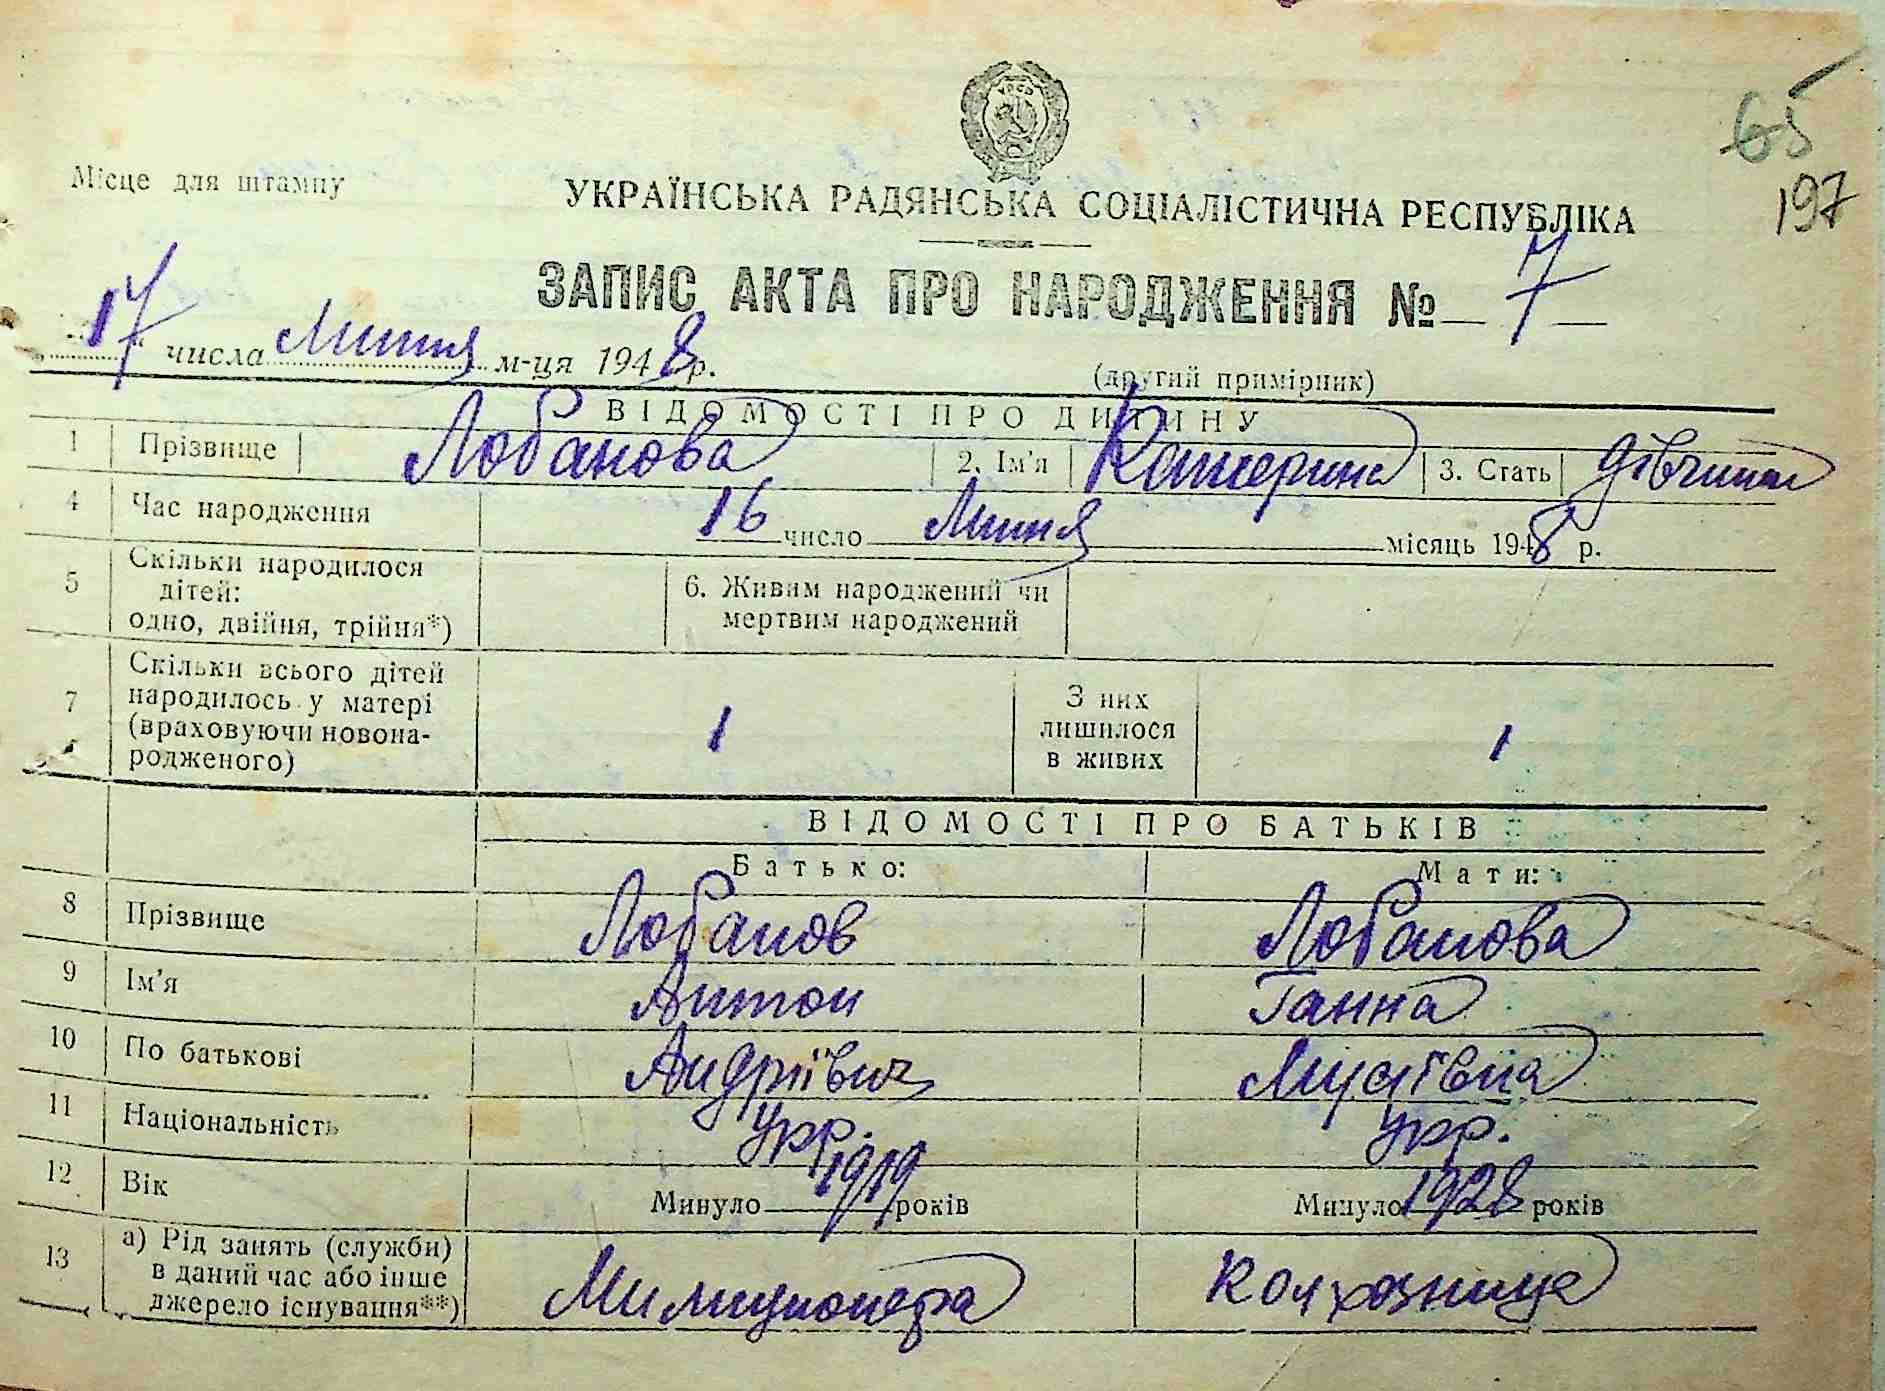 УРСР
65
197
Місце для штампу
УКРАЇНСЬКА РАДЯНСЬКА СОЦІАЛІСТИЧНА РЕСПУБЛІКА
ЗАПИС АКТА ПРО НАРОДЖЕННЯ № 7
"17" числа Липня м-ця 1948 р.
(другий примірник)
ВІДОМОСТІ ПРО ДИТИНУ
1 Прізвище Лобанова 2. Ім'я Катерина 3. Стать дівчина
4 Час народження 16 число Липня місяць 1948 р.
5 Скільки народилося дітей: одно, двійня, трійня*) 6. Живим народжений чи мертвим народжений
7 Скільки всього дітей народилось у матері (враховуючи новонародженого) 1 З них лишилося в живих 1
ВІДОМОСТІ ПРО БАТЬКІВ
Батько: Мати:
8 Прізвище Лобанов Лобанова
9 Ім'я Антон Ганна
10 По батькові Андріївич Мусіївна
11 Національність Укр. Укр.
12 Вік Минуло 1919 років Минуло 1928 років
13 а) Рід занять (служби) в даний час або інше джерело існування**) Колхозница